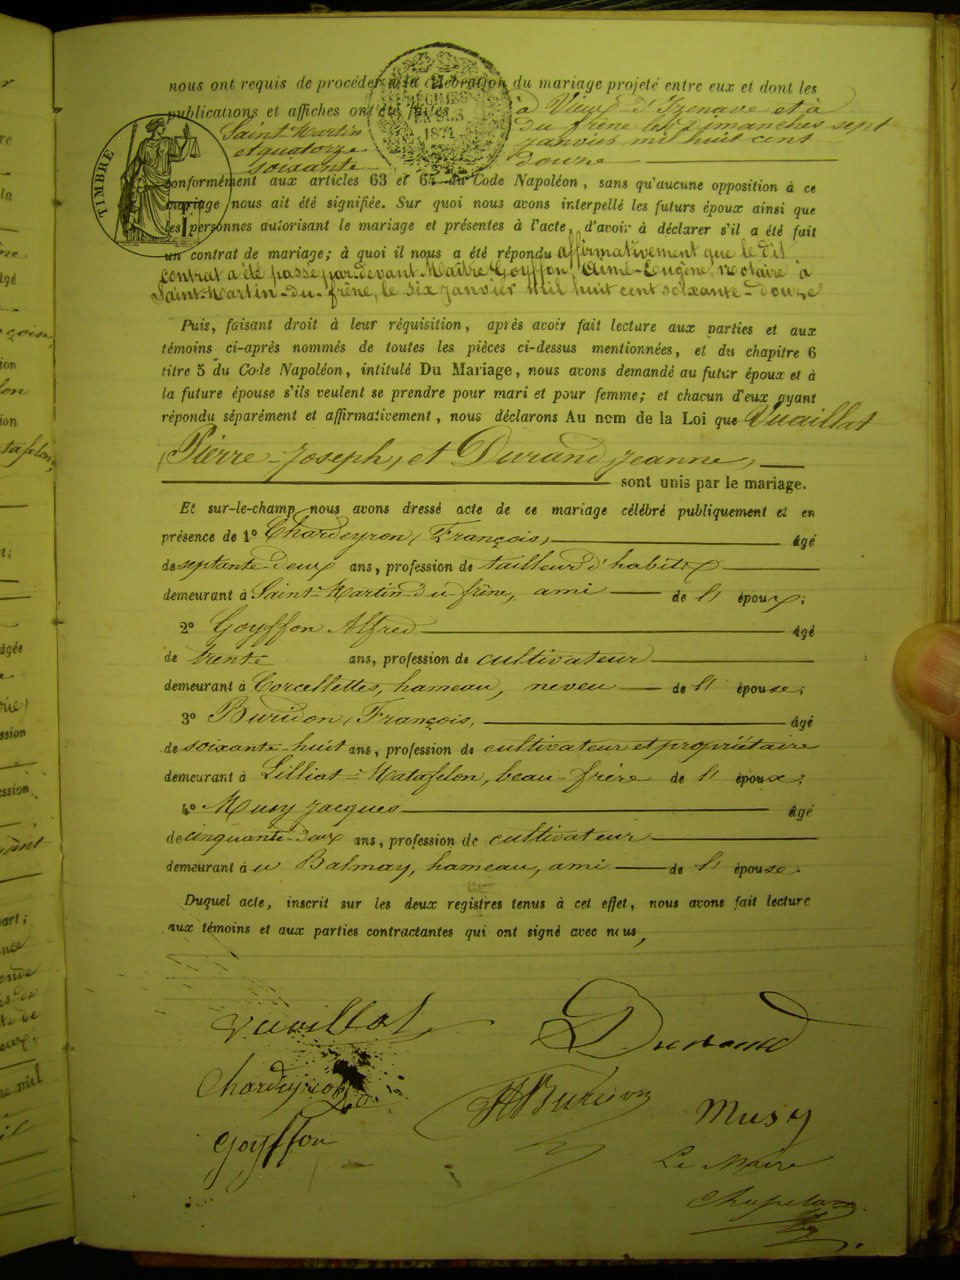 nous ont requis de procéder à la célébration du mariage projeté entre eux et dont les
publications et affiches ont été faites à Vieux d'Izenave et à
Saint-Martin du frêne les dimanches sept
et quatorze janvier mil huit cent
soixante douze
TIMBRE
conformément aux articles 63 et 65 du Code Napoléon, sans qu'aucune opposition à ce
mariage nous ait été signifiée. Sur quoi nous avons interpellé les futurs époux ainsi que
les personnes autorisant le mariage et présentes à l'acte, d'avoir à déclarer s'il a été fait
un contrat de mariage; à quoi il nous a été répondu affirmativement que le dit
contrat a été passé par-devant Maître Goyffon, Aimé-Eugène, notaire à
Saint-Martin-du-frêne, le six janvier mil huit cent soixante-douze
Puis, faisant droit à leur réquisition, après avoir fait lecture aux parties et aux
témoins ci-après nommés de toutes les pièces ci-dessus mentionnées, et du chapitre 6
titre 5 du Code Napoléon, intitulé Du Mariage, nous avons demandé au futur époux et à
la future épouse s'ils veulent se prendre pour mari et pour femme; et chacun d'eux ayant
répondu séparément et affirmativement, nous déclarons Au nom de la Loi que Vuaillat
Pierre-Joseph, et Durand Jeanne,
sont unis par le mariage.
Et sur-le-champ nous avons dressé acte de ce mariage célébré publiquement et en
présence de 1º Chardeyron, François, âgé
de septante-deux ans, profession de tailleur d'habits
demeurant à Saint-Martin-du-frêne, ami de l' époux;
2º Goyffon Alfred âgé
de trente ans, profession de cultivateur
demeurant à Corcellettes, hameau, neveu de l' épouse;
3º Buridon, François, âgé
de soixante-huit ans, profession de cultivateur et propriétaire
demeurant à Lilliat-Matafelon, beau-frère de l' époux;
4º Musy Jacques âgé
de cinquante-deux ans, profession de cultivateur
demeurant à Balmay, hameau, ami de l' épouse.
Duquel acte, inscrit sur les deux registres tenus à cet effet, nous avons fait lecture
aux témoins et aux parties contractantes qui ont signé avec nous,
Vuaillat Durand
Chardeyron Buridon Musy
Goyffon Le Maire